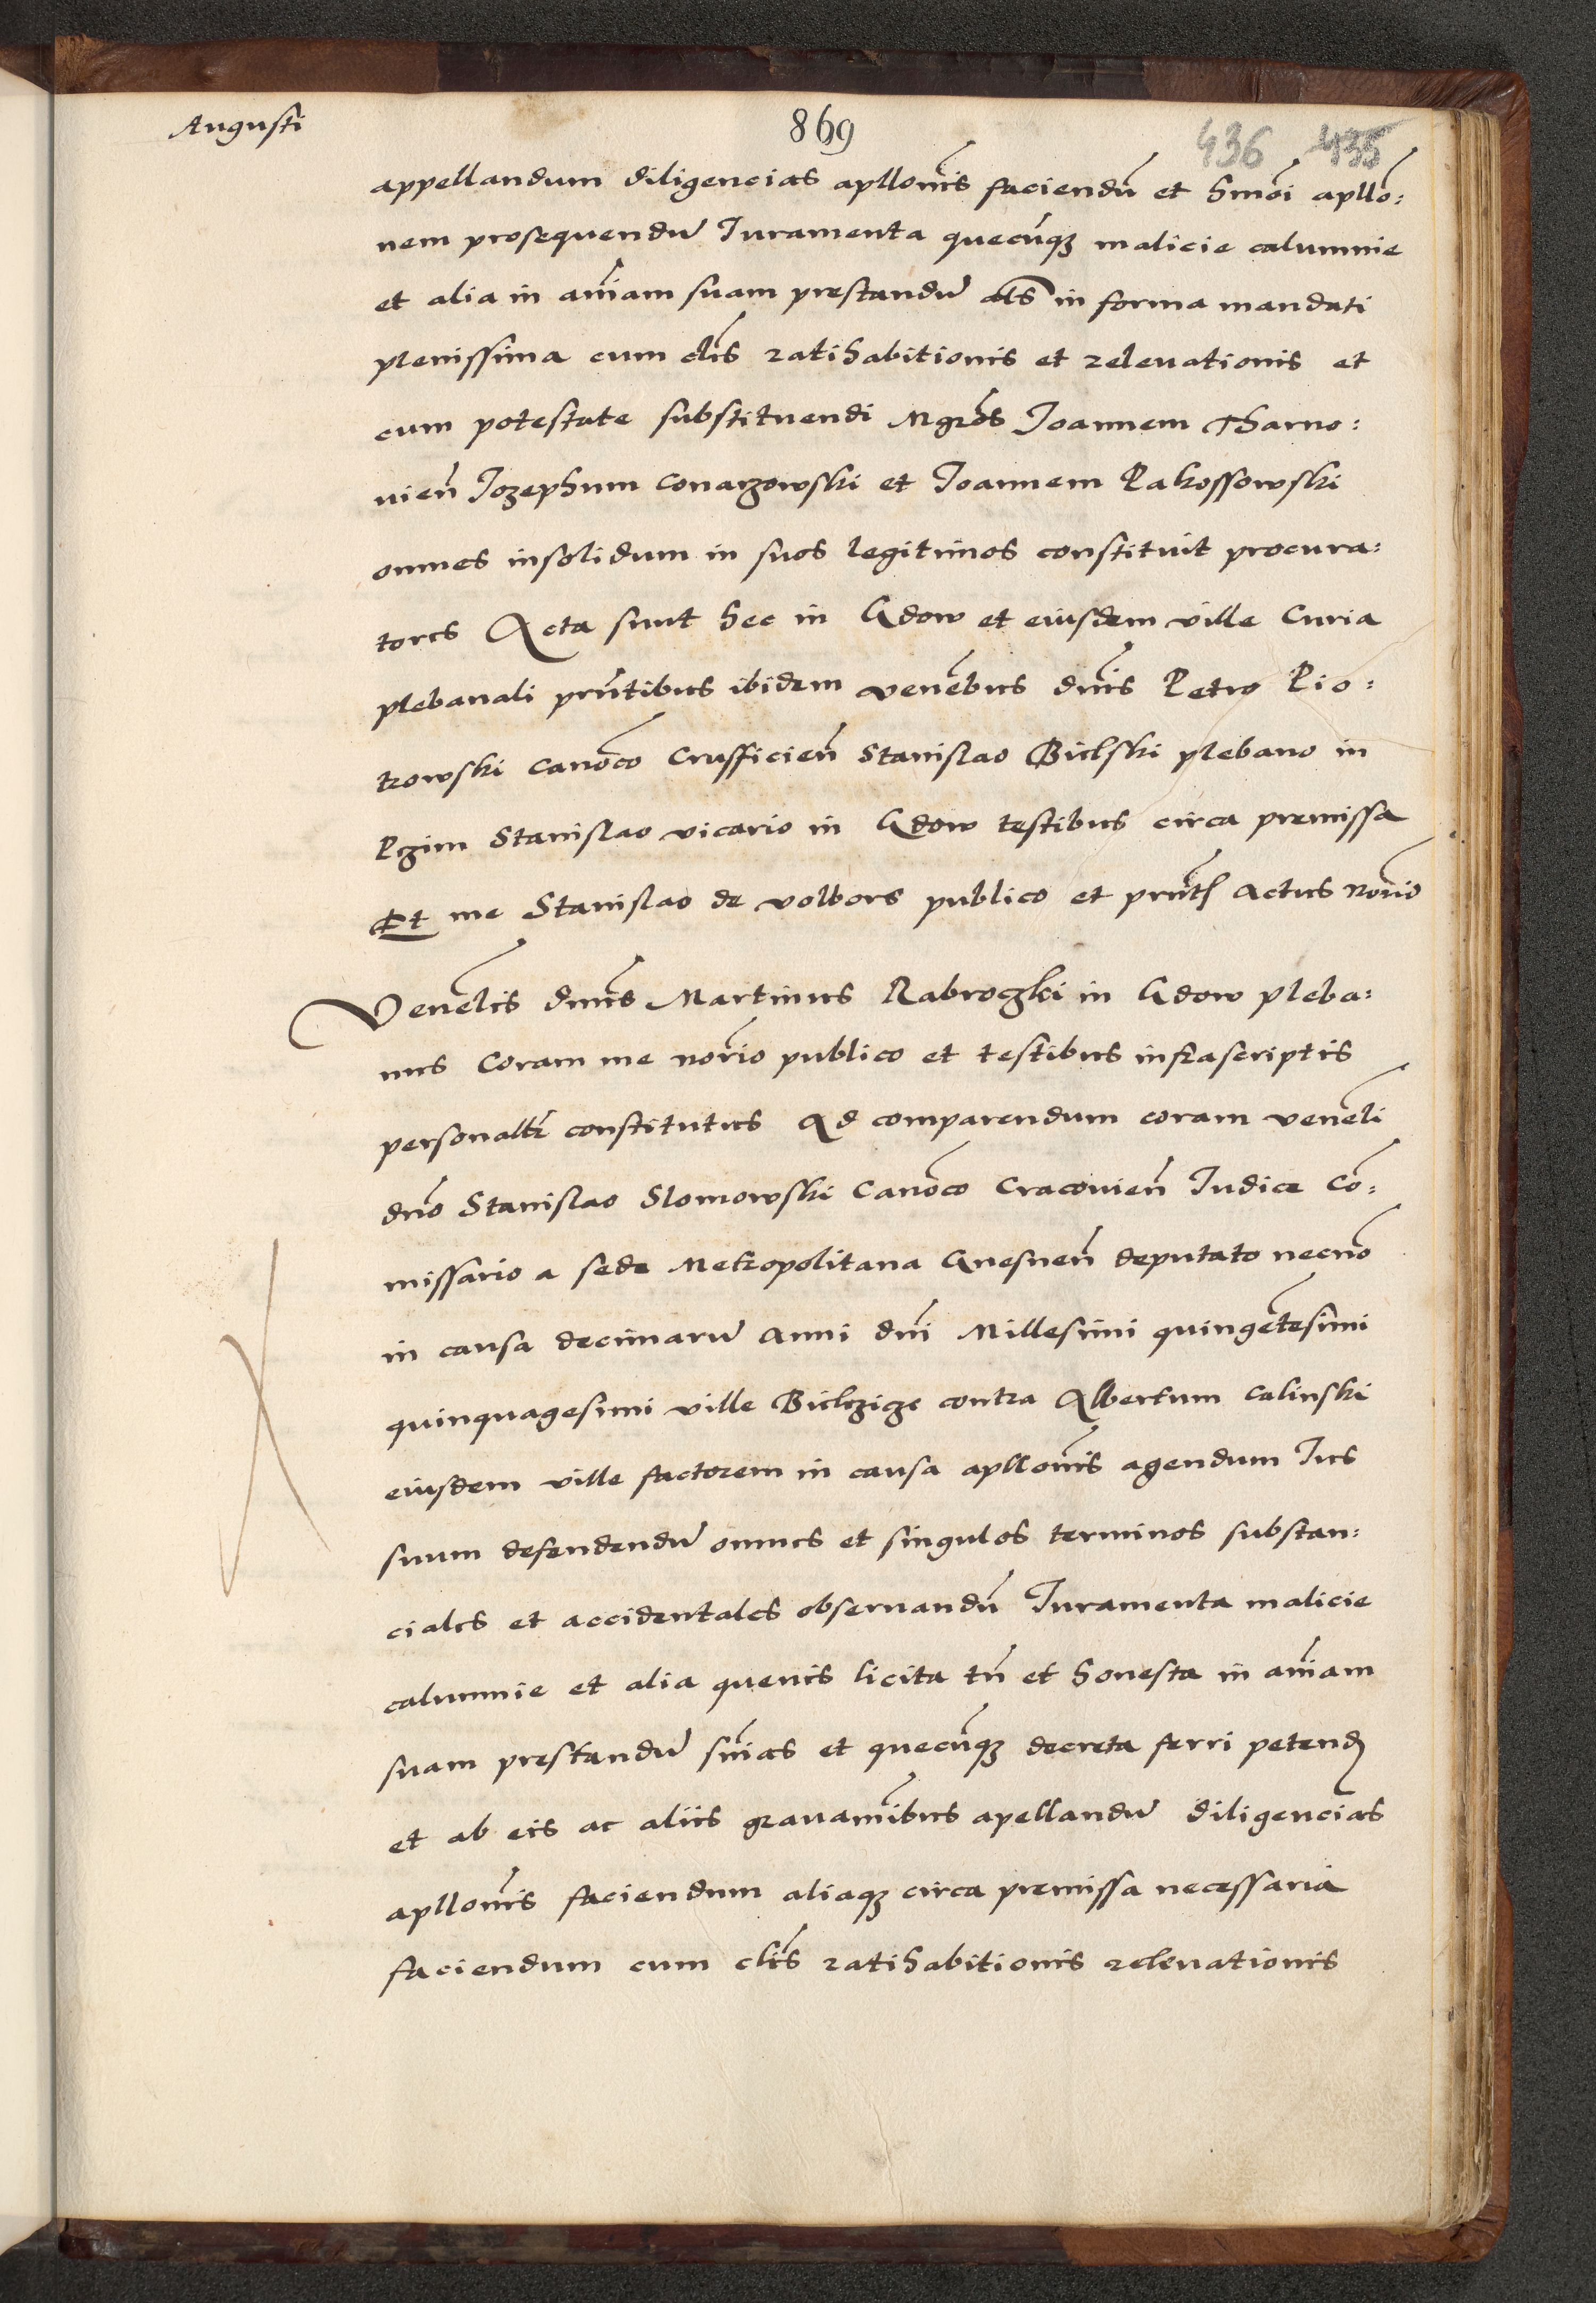 Augusti
869
436 435
appellandum diligencias apllonis faciendu et hmoi apllo:
nem prosequendu Iuramenta quecuqz malicie calumnie
et alia in aniam suam prestandu als in forma mandati
plenissima cum clis ratihabitionis et relevationis et
cum potestate substituendi Mgros Joannem Tharno:
vien Jozephum Conarzowski et Joannem Rakossowski
omnes insolidum in suos legitimos constituit procura:
tores Acta sunt hec in Gdow et eiusdem ville Curia
plebanali pntibus ibidem venebus dnis Petro Pio:
trowski Canoco Crufficien Stanislao Bielski plebano in
Pzim Stanislao vicario in Gdow testibus circa premissa
Et me Stanislao de volbors publico et pntis Actus norio
Venelis dnus Martinus Rabrogski in Gdow pleba:
nus Coram me norio publico et testibus infrascriptis
personaltr constitutus Ad comparendum coram veneli
dno Stanislao Slomowski Canoco Cracovien Iudice Co:
missario a sede Metropolitana Gnesnen deputato necno
in causa decimaru Anni dni Millesimi quingetesimi
quinquagesimi ville Bielczicze contra Albertum Calinski
eiusdem ville factorem in causa apllonis agendum Ius
suum defendendu omnes et singulos terminos substan:
ciales et accidentales observandu Iuramenta malicie
calumnie et alia quevis licita tn et honesta in aniam
suam prestandu snias et quecuqz decreta ferri petend
et ab eis ac aliis gravaminibus apellandu diligencias
apllonis faciendum aliaqz circa premissa necessaria
faciendum cum clis ratihabitionis relevationis